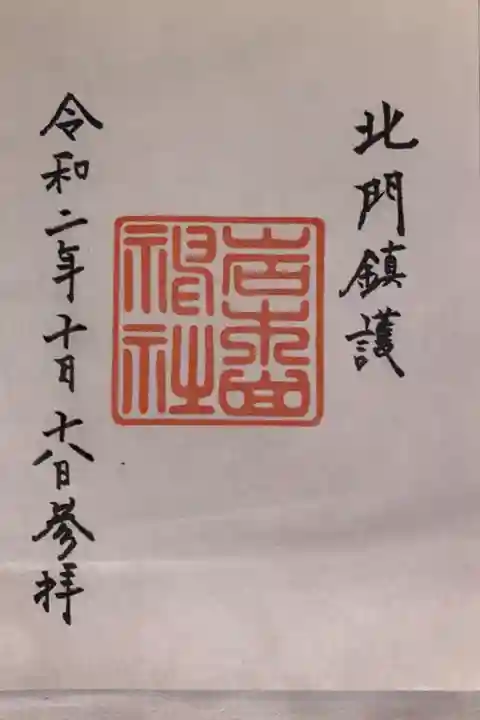 北門鎮護
岩木山神社
令和二年十月十八日参拝